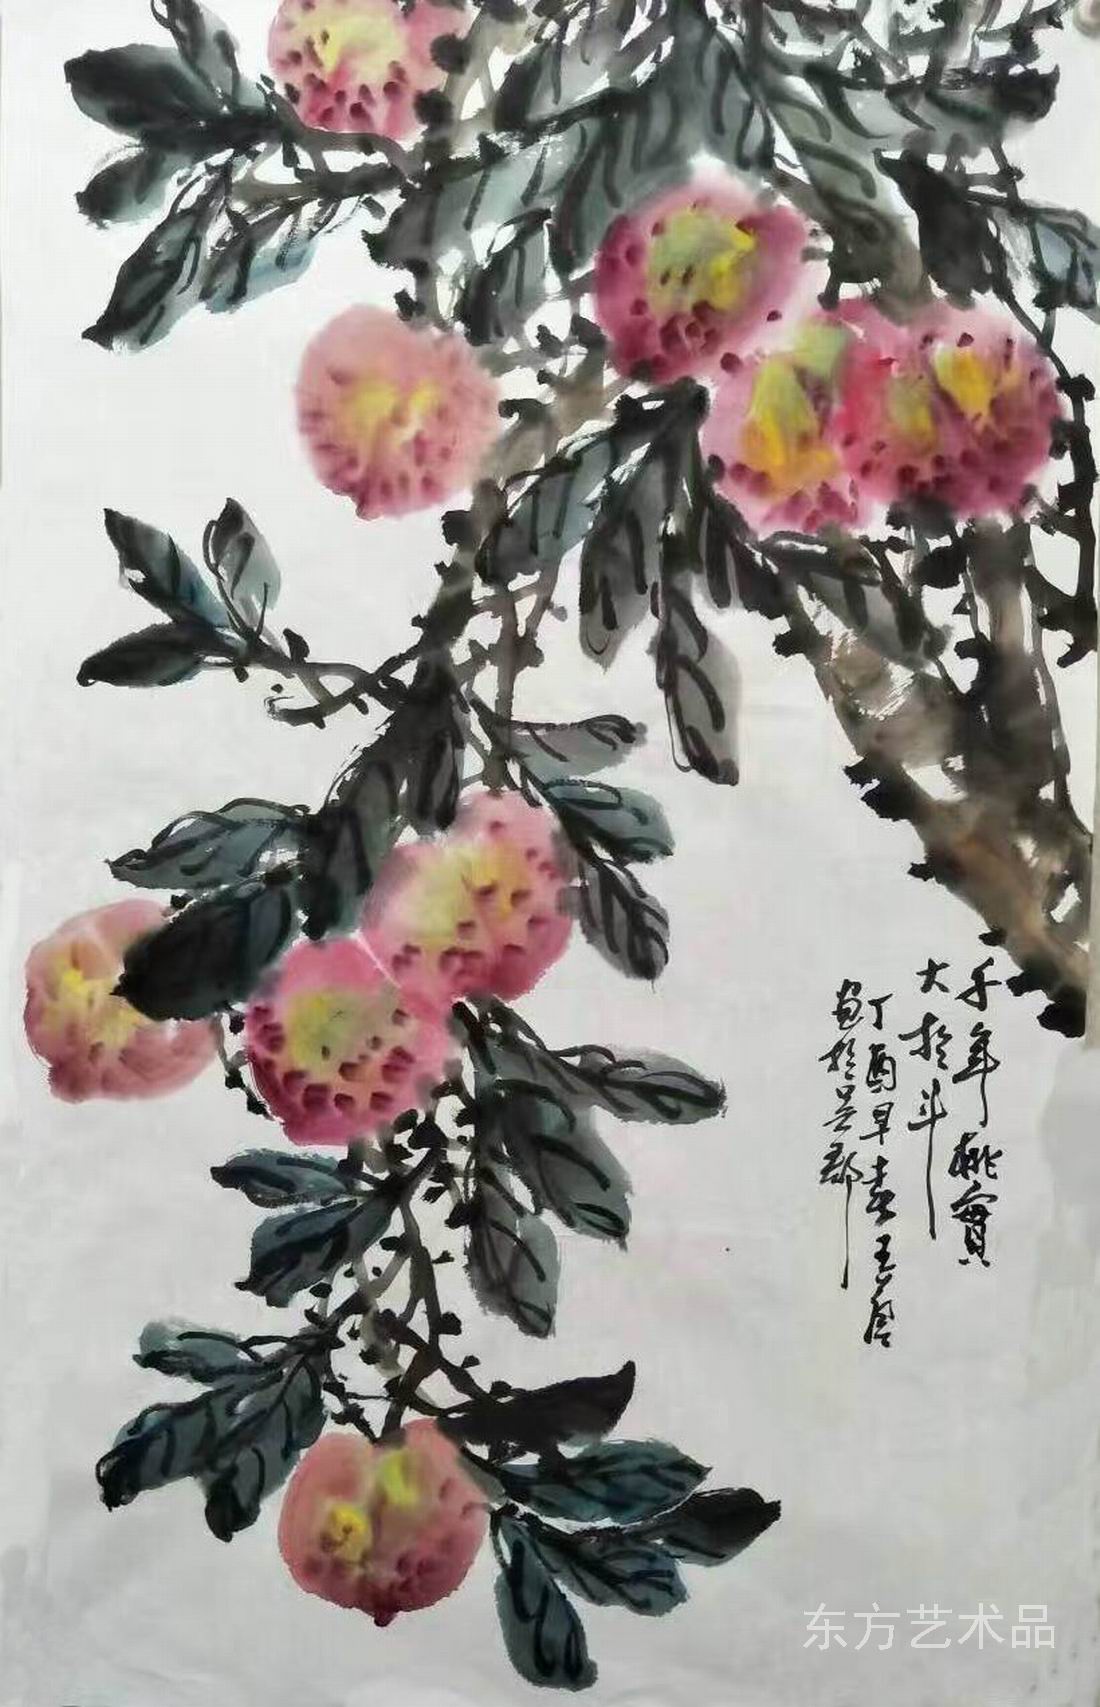 千年桃實
大於斗
丁酉早春王
畫於吴郡
东方艺术品